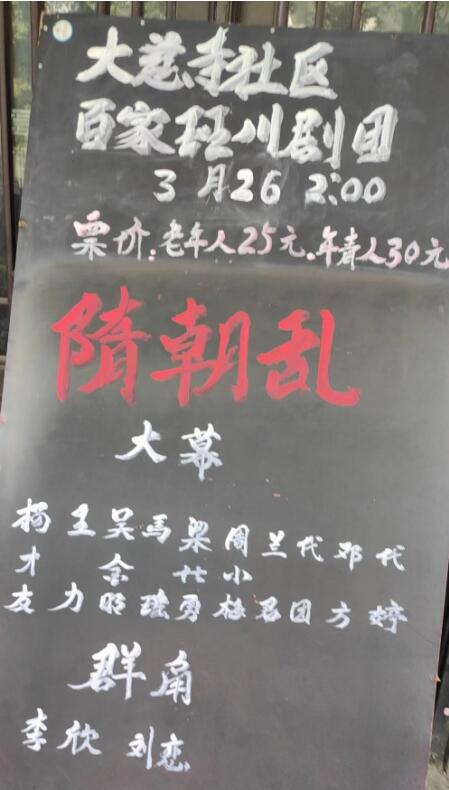 大慈寺社区
百家班川剧团
3月26 2:00
票价:老年人25元.年青人30元
隋朝乱
大幕
杨王吴马梁周兰代邓代
才 含 廿小
友力明 勇梅君团方婷
群角
李欣 刘恋